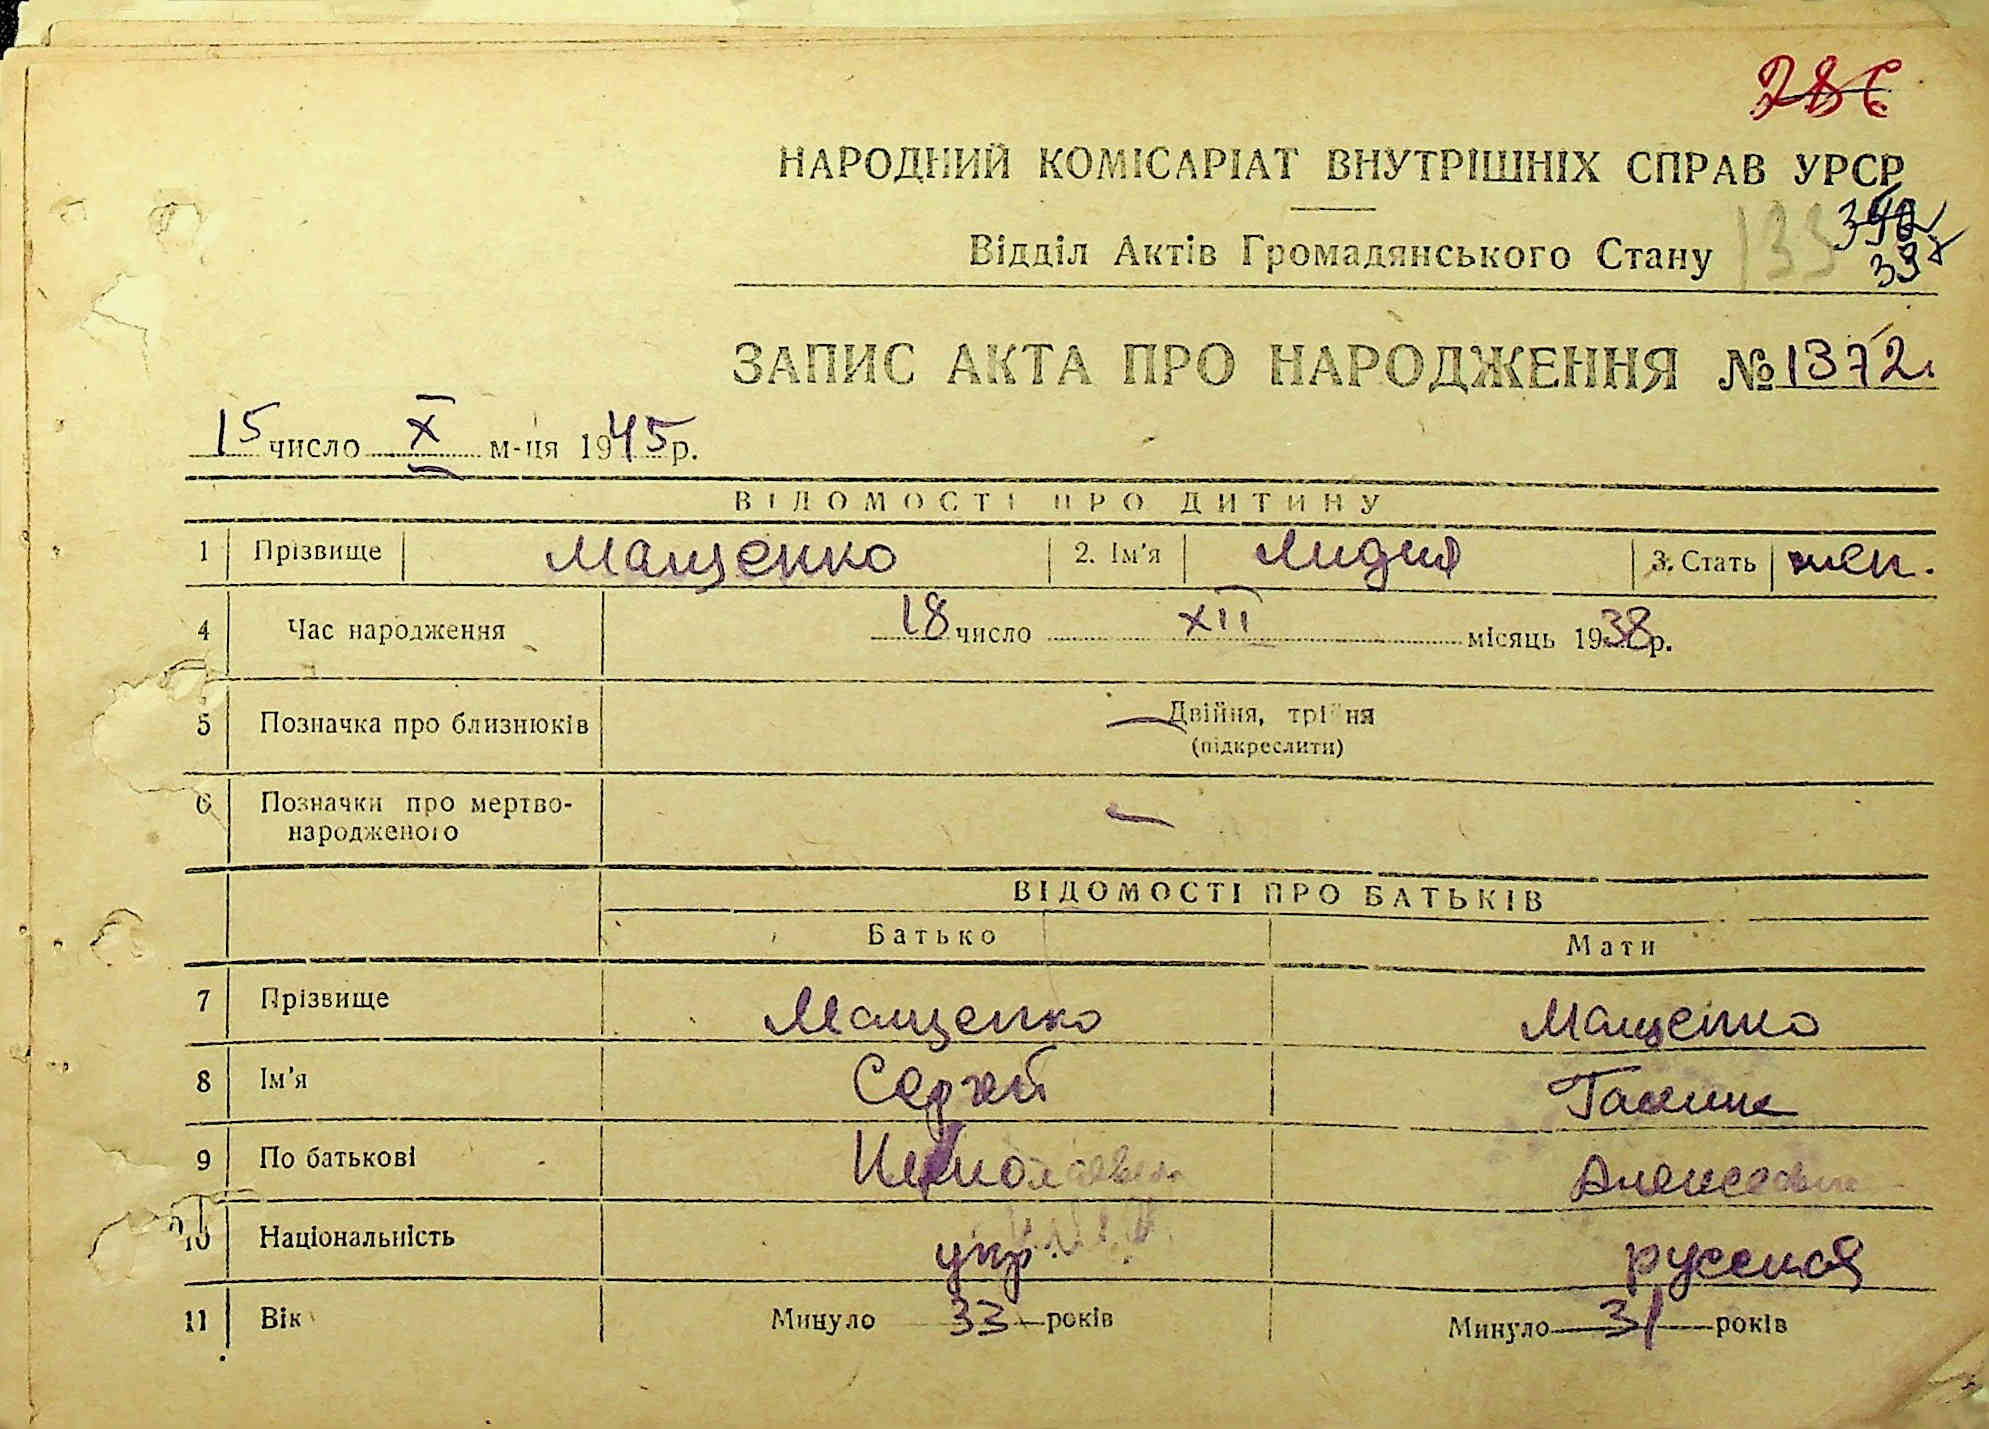 286
НАРОДНИЙ КОМІСАРІАТ ВНУТРІШНІХ СПРАВ УРСР
Відділ Актів Громадянського Стану 133
39
ЗАПИС АКТА ПРО НАРОДЖЕННЯ № 1372
15 число X м-ця 1945 р.
ВІДОМОСТІ ПРО ДИТИНУ
1 Прізвище Мащенко 2. Ім'я Лидия 3. Стать жен.
4 Час народження 18 число XII місяць 1938 р.
5 Позначка про близнюків — Двійня, трійня
(підкреслити)
6 Позначки про мертво-
народженого —
ВІДОМОСТІ ПРО БАТЬКІВ
Батько Мати
7 Прізвище Мащенко Мащенко
8 Ім'я Сергей Галина
9 По батькові Николаевич Алексеевна
10 Національність укр. русская
11 Вік Минуло 33 років Минуло 31 років